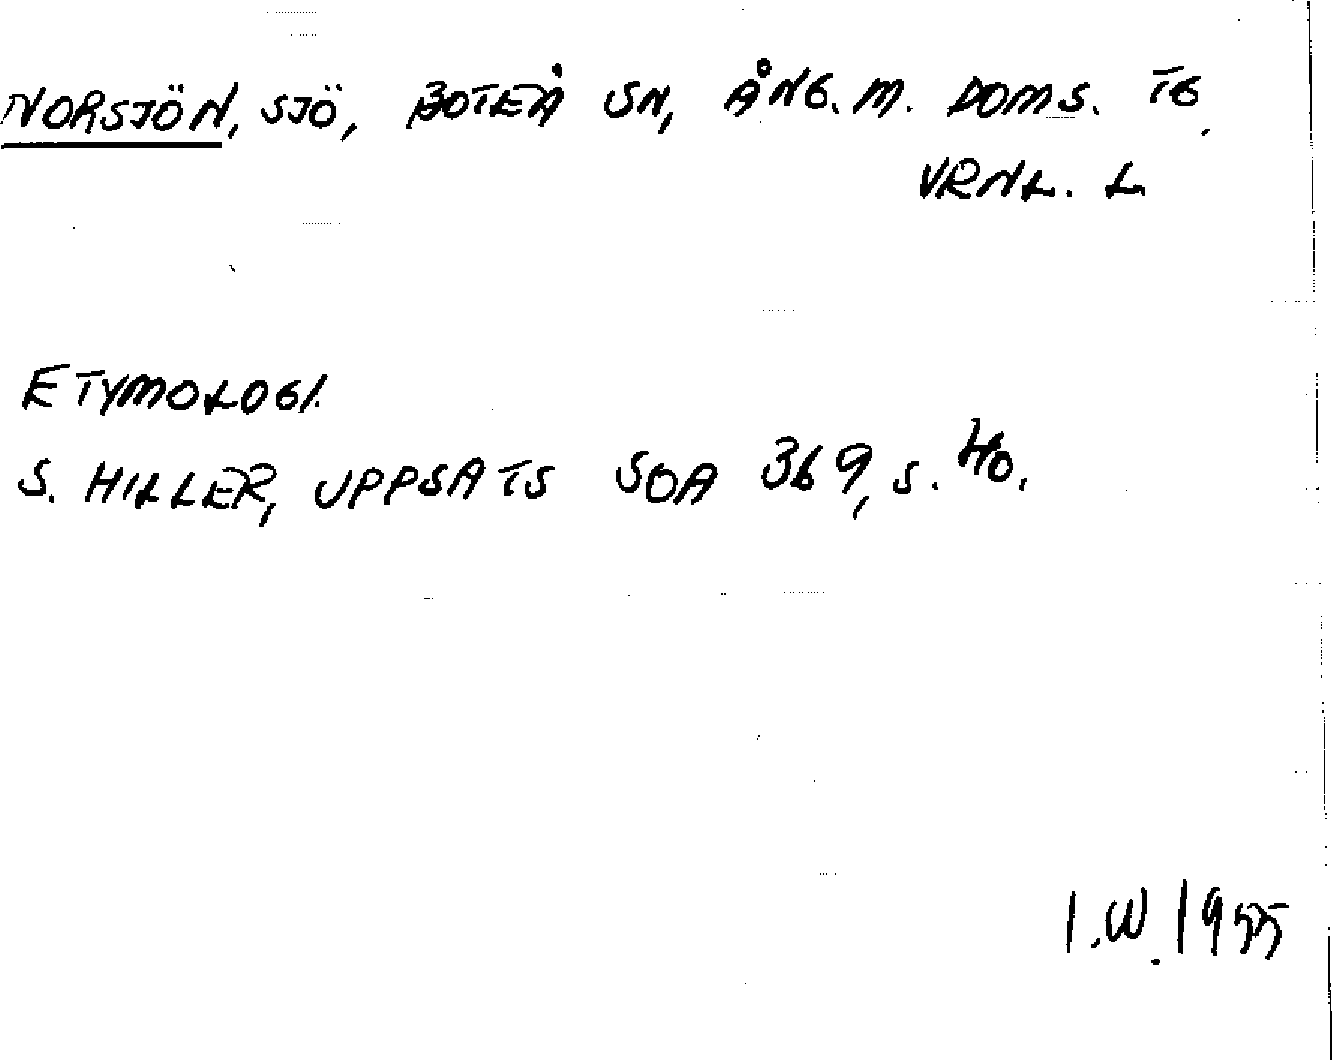 NORSJÖN, SJÖ, BOTEÅ SN, ÅNG. M. DOMS. TG,
VRNL. L
ETYMOLOGI.
S. HILLER, UPPSATS SOA 369, S. 40.
I.W. 1955